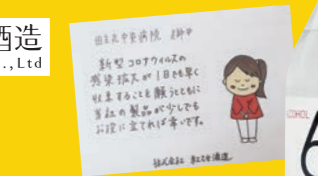 酒造
., Ltd
中央病院 御中
新型コロナウィルスの
感染拡大が1日でも早く
収束することを願うとともに
当社の製品が少しでも
お役に立てれば幸いです。
株式会社
COHOL
6